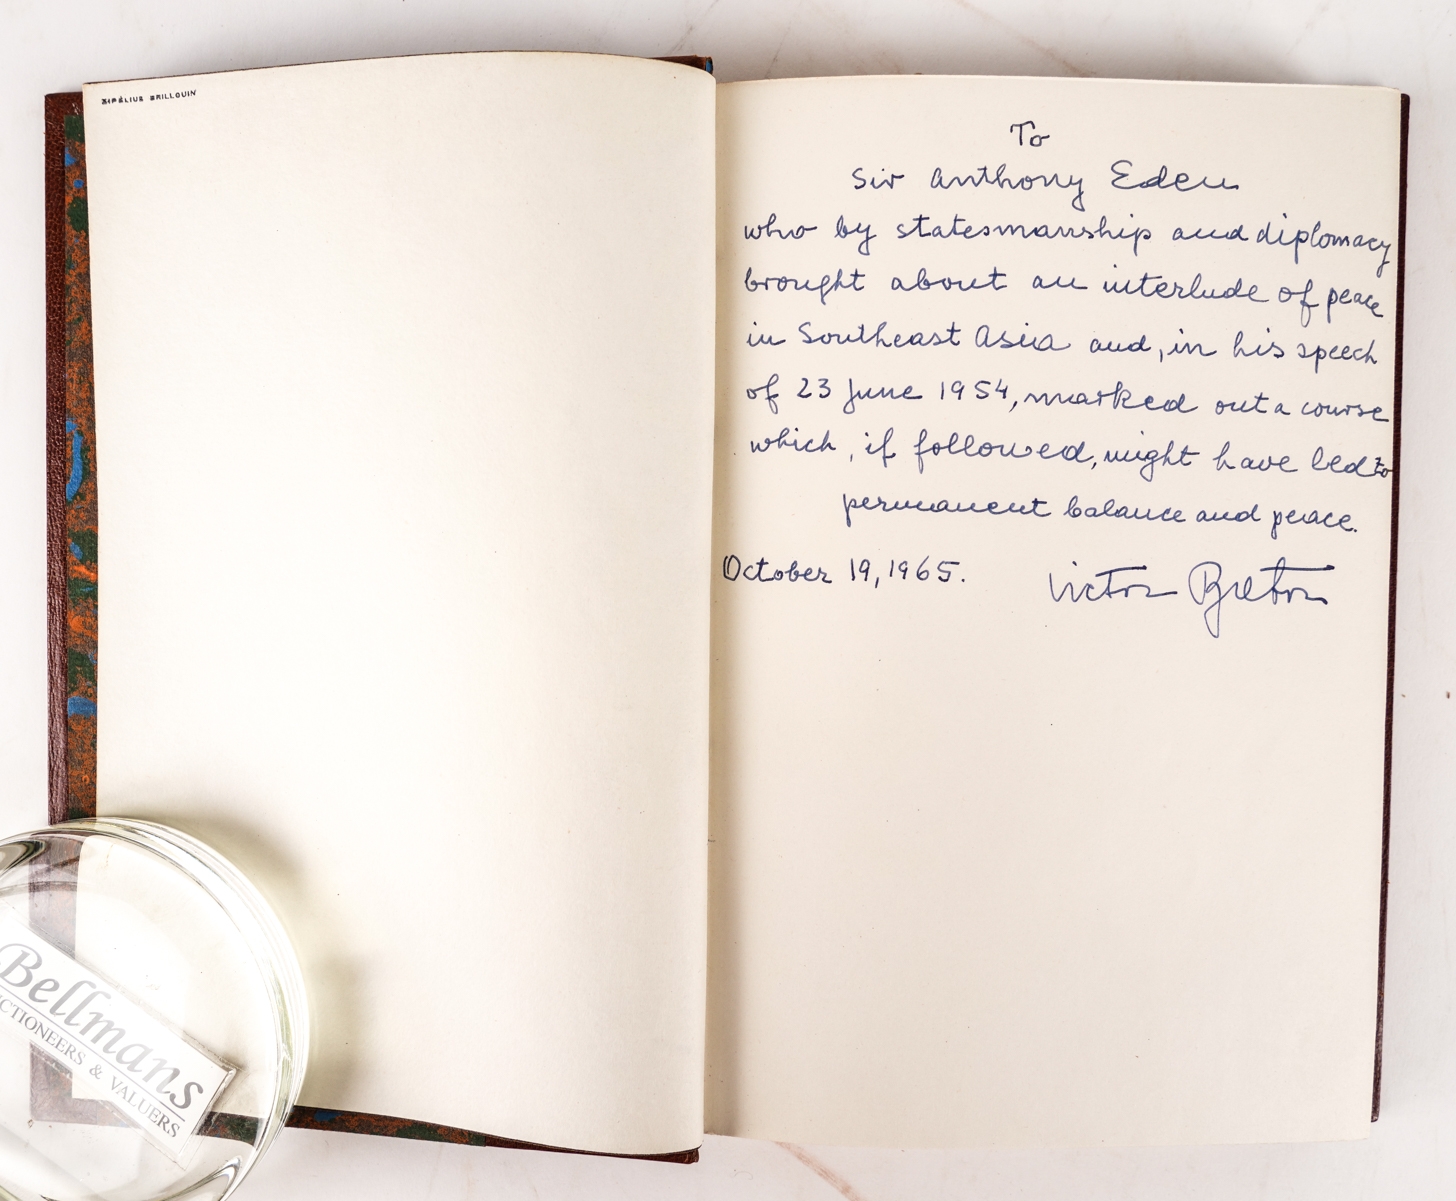 BRILLOUIN
To
Sir Anthony Eden
who by statesmanship and diplomacy
brought about an interlude of peace
in Southeast Asia and, in his speech
of 23 June 1954, marked out a course
which, if followed, might have led to
permanent balance and peace.
October 19, 1965. Victor
Bellmans
CTIONEERS & VALUERS